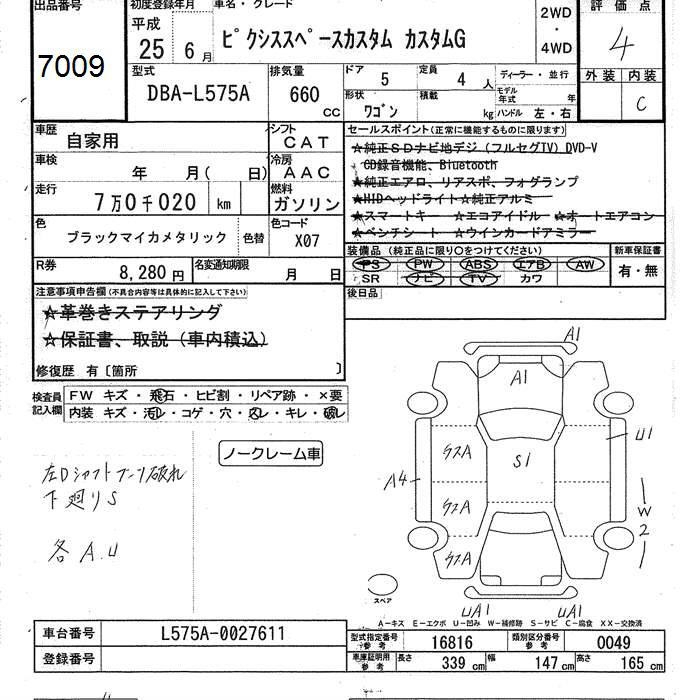 出品番号
7009
初度登録年月
平成
25年 6月
車名・グレード
ピクシススペースカスタム カスタムG
2WD
・
4WD
評価点
4
外装 内装
C
型式
DBA-L575A
排気量
660
CC
ドア 5
定員 4 人
ディーラー・並行
形状 ワゴン
積載 kg
モデル年式 年
ハンドル 左・右
車歴
自家用
シフト
CAT
車検
年 月( 日)
冷房
AAC
走行
7万0千020 km
燃料
ガソリン
色
ブラックマイカメタリック
色替
色コード
X07
R券
8,280円
名変通知期限
月 日
セールスポイント(正常に機能するものに限ります)
★純正SDナビ地デジ(フルセグTV)DVD-V
CD録音機能、Bluetooth
★純正エアロ、リアスポ、フォグランプ
★HIDヘッドライト☆純正アルミ
★スマートキー ☆エコアイドル ☆オートエアコン
★ベンチシート ☆ウインカードアミラー
装備品(純正品に限り〇をつけてください)
PS PW ABS エアB AW
SR ナビ TV カワ
新車保証書
有・無
後日品
注意事項申告欄(不具合内容等は具体的に記入して下さい)
★革巻きステアリング
★保証書、取説(車内積込)
修復歴 有〔箇所 〕
検査員
記入欄
FW キズ・飛石・ヒビ割・リペア跡・×要
内装 キズ・汚レ・コゲ・穴・スレ・キレ・破レ
ノークレーム車
左Dシャフトブーツ破れ
下廻りS
各A.U
A1
A1
クスA
S1
U1
A4
クスA
W2
クスA
スペア
UA1
UA1
A-キズ E-エクボ U-凹み W-補修跡 S-サビ C-腐食 XX-交換済
車台番号
L575A-0027611
登録番号
型式指定番号
参考
16816
類別区分番号
参考
0049
車庫証明用
参考
長さ 339 cm
幅 147 cm
高さ 165 cm